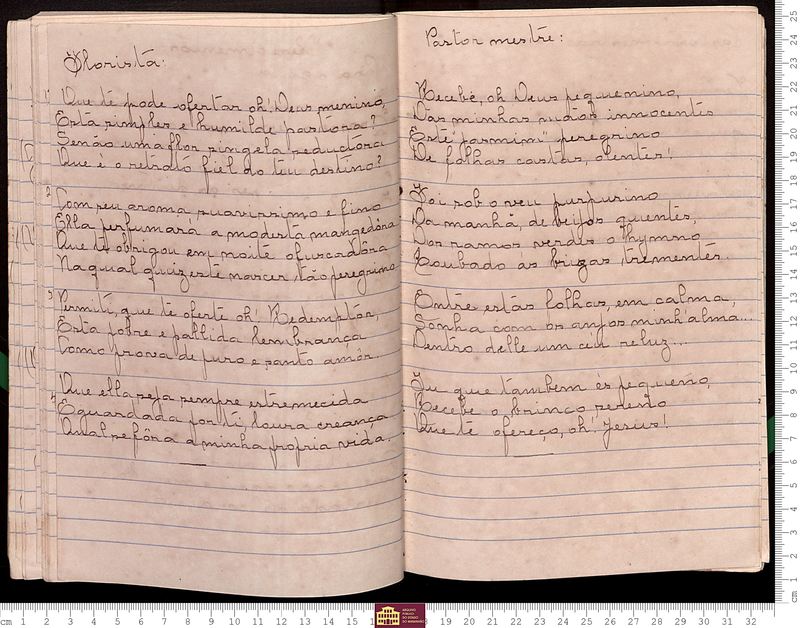 Florista:
1 Que te pode ofertar oh! Deus menino,
Esta simples e humilde pastora?
Senão uma flor singela seductora
Que é o retrato fiel do teu destino?
2 Com seu aroma suavissimo e fino
Ella perfumará a modesta mangedôra
Que te obrigou em noite ofuscadôra
Na qual quizeste nascer, tão peregrino
3 Permiti, que te oferte oh! Redemptor,
Esta pobre e pallida lembrança
Como prova de puro e santo amôr.
4 Que ella seja sempre estremecida
E guardada por ti, loura creança
Qual se fôra a minha propria vida.
Pastor mestre:
Recebe, oh Deus pequenino,
Das minhas mãos innocentes
Este "jasmim" peregrino
De folhas castas, olentes!
Foi sob o veu purpurino
Da manhã, de beijos quentes,
Dos ramos verdes o hymno
Roubado às brizas, trementes.
Entre estas folhas, em calma,
Sonha com os anjos minh'alma...
Dentro delle um ceu reluz...
Tu que tambem és pequeno,
Recebe o brinco sereno
Que te ofereço, oh! Jesus!
cm 1 2 3 4 5 6 7 8 9 10 11 12 13 14 15 1
ARQUIVO PÚBLICO DO ESTADO DO MARANHÃO
19 20 21 22 23 24 25 26 27 28 29 30 31 32
cm 1 2 3 4 5 6 7 8 9 10 11 12 13 14 15 16 17 18 19 20 21 22 23 24 25